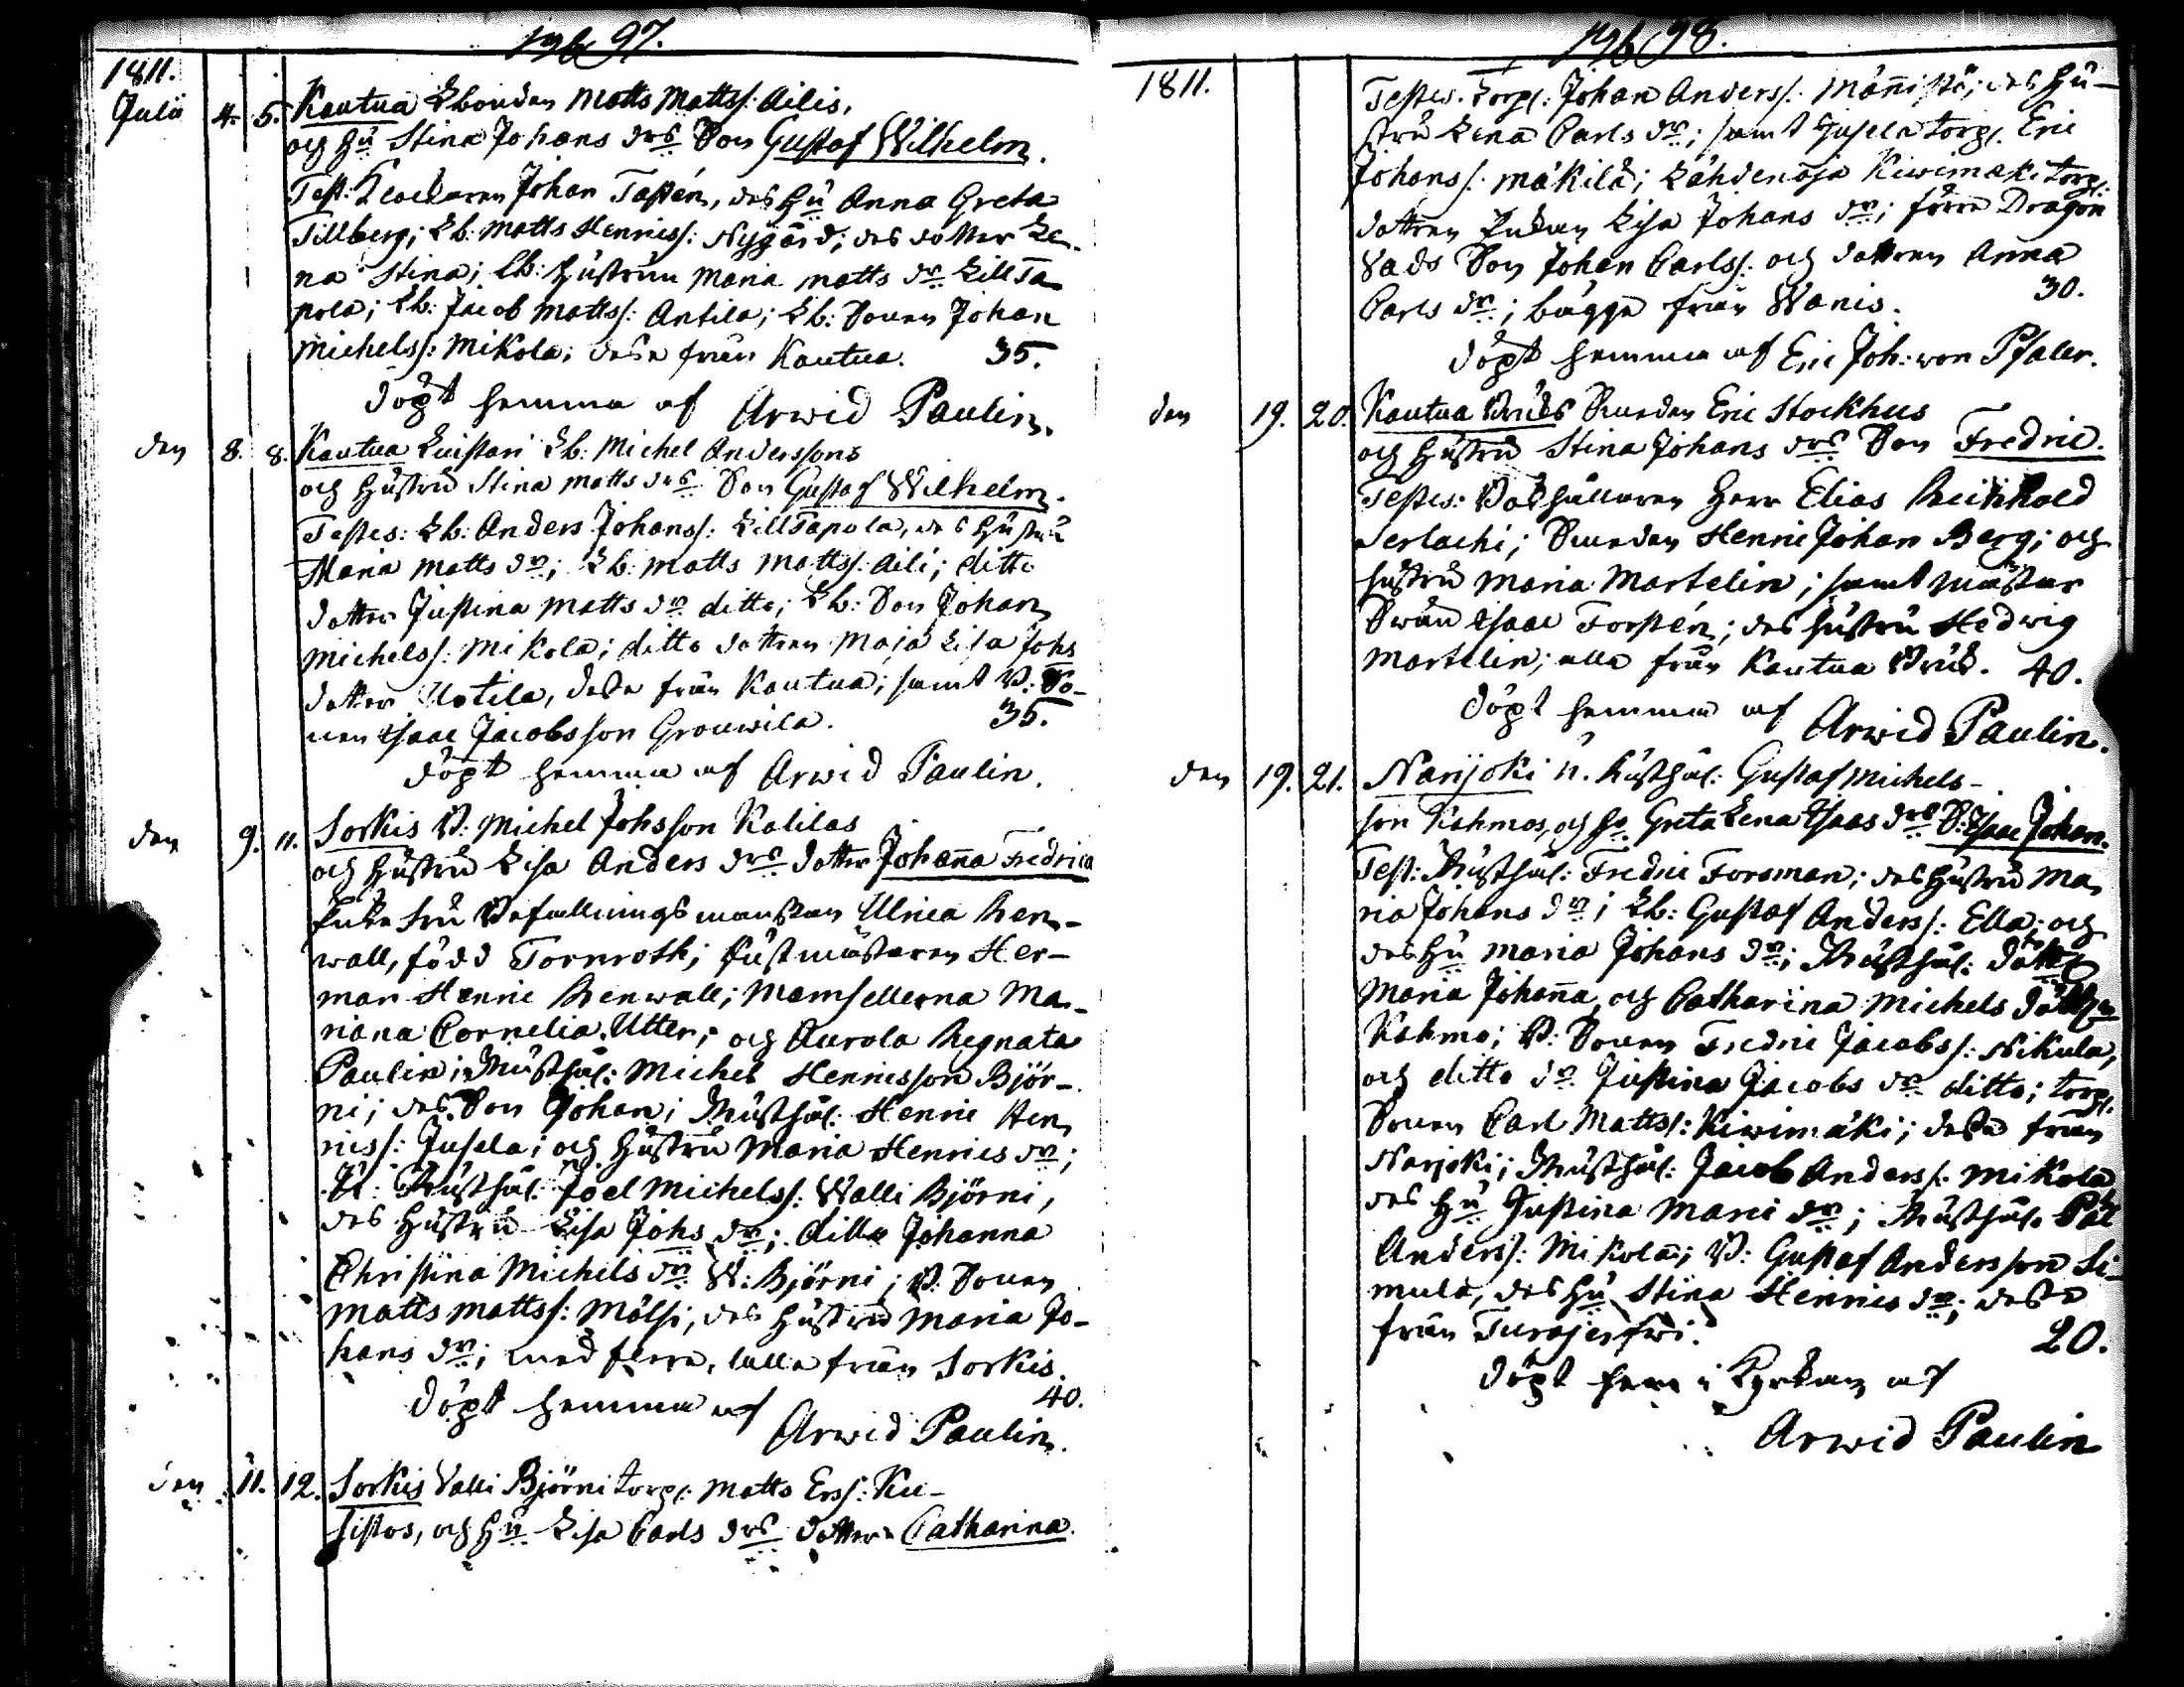 97.
1811.
Julii 4. 5. Kautua Lbonden Matts Mattss: Ailis,
och Hu Stina Johans drs Son Gustaf Wilhelm.
Test: Klockaren Johan Tastén, des Hu Anna Greta
Tillberg; Lb: Matts Henrics: Nygård; des dotter Le-
na Stina; Lb: Hustrun Maria Matts dr LillTa-
pola; Lb: Jacob Mattss: Antila; Lb: Sonen Johan
Michelss: Mikola; desse från Kautua. 35.
döpt hemma af Arwid Paulin.
den 8. 8. Kautua Luistari Lb: Michel Anderssons
och Hustru Stina Matts drs Son Gustaf Wilhelm.
Testes: Lb: Anders Johanss: LillTapola, des Hustru
Maria Matts dr; Lb: Matts Mattss: Aili; ditto
dotter Justina Matts dr ditto; Lb: Son Johan
Michelss: Mikola; ditto dottren Maja Lisa Johs
dotter Uotila, desse från Kautua; samt B: So-
nen Isaac Jacobsson Grouwila. 35.
döpt hemma af Arwid Paulin.
den 9. 11. Sorkis B: Michel Johsson Kalilas
och Hustru Lisa Anders drs dotter Johanna Fredrica
Enke Fru Befallningsmanskan Ulrica Ren-
wall, född Tornroth; Rustmästaren Her-
man Henric Renwall; Mamsellerna Ma-
riana Cornelia Utter; och Aurola Regnata
Paulin; Rusthål: Michel Henricsson Björ-
ni; des Son Johan; Rusthål: Henric Hen
ricss: Jusela; och Hustru Maria Henrics dr;
U: Rusthål: Joel Michelss: Walli Björni,
des Hustru Lisa Johs dr; ditto Johanna
Christina Michels dr W: Björni; B: Sonen
Matts Mattss: Mölsi; des Hustru Maria Jo-
hans dr; med flere, alla från Sorkis.
40.
döpt hemma af
Arwid Paulin.
den 11. 12. Sorkis Valli Björni torp: Matts Erss: Ku-
sistos, och Hu Lisa Carls drs dotter Catharina.
98.
1811.
Testes. Torp: Johan Anderss: Männistö; des Hu-
stru Lena Carls dr; samt Jusela torp: Eric
Johanss: Mäkilä; Lähdenoja Kiwimäki torp:
dottren Pigan Lisa Johans dr; förre Dragon
Vads Son Johan Carlss: och dottren Anna
Carls dr; bägge från Wanis. 30.
döpt hemma af Eric Joh: von Pfaler.
den 19. 20. Kautua Bruks Smeden Eric Stockhus
och Hustru Stina Johans drs Son Fredric.
Testes: Bokhållaren Herr Elias Reinhold
Serlachi; Smeden Henric Johan Berg; och
hustru Maria Martelin; samt Mäster
Swän Isaac Forstén; des hustru Hedwig
Martelin; alla från Kautua Bruk. 40.
döpt hemma af
Arwid Paulin.
den 19. 21. Narijoki n. Rusthål: Gustaf Michels-
son Kahmos, och Hu Greta Lena Isaacs drs S: Isaac Johan.
Test: Rusthål: Fredric Forsman; des Hustru Ma-
ria Johans dr; Lb: Gustaf Anderss: Ella; och
des Hu Maria Johans dr; Rusthål: dott
Maria Johanna, och Catharina Michels döttr
Kahmo; B: Sonen Fredric Jacobss: Nikula,
och ditto dr Justina Jacobs dr ditto; torp:
Sonen Carl Mattss: Kiwimäki; desse från
Narjoki; Rusthål: Jacob Anderss: Mikola
des Hu Justina Mari dr; Rusthål:
Anderss: Mikola; B: Gustaf Andersson Si-
mula, des Hu Stina Henrics dr; desse
från Turajerfwi. 20.
döpt här i Kyrkan af
Arwid Paulin